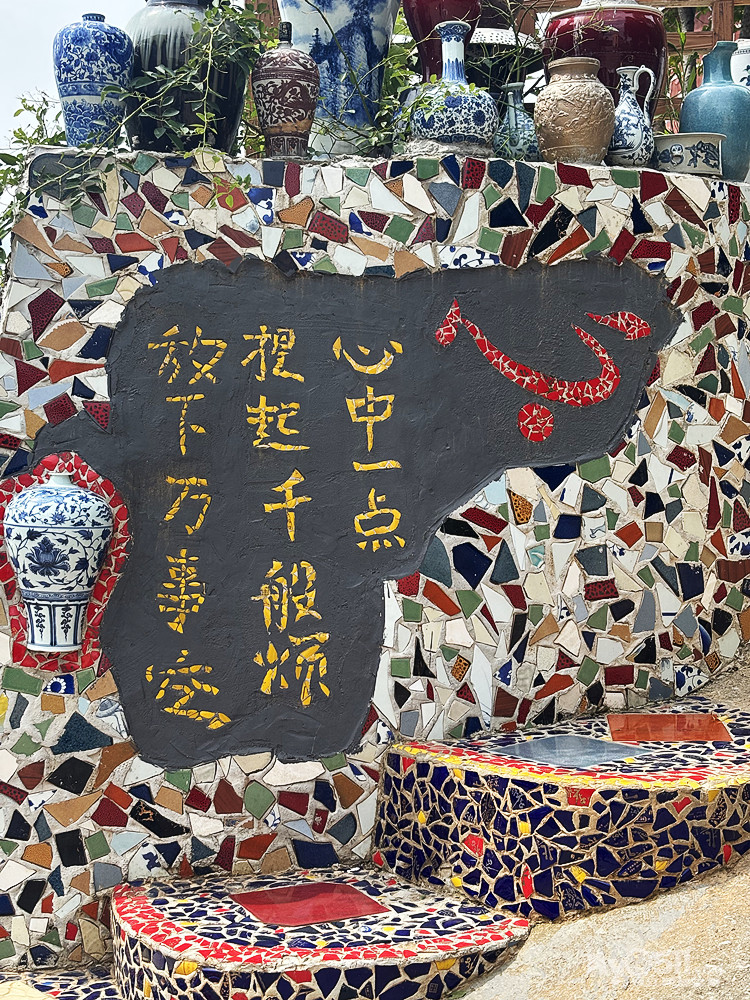 心
心中一点
提起千般烦
放下万事空